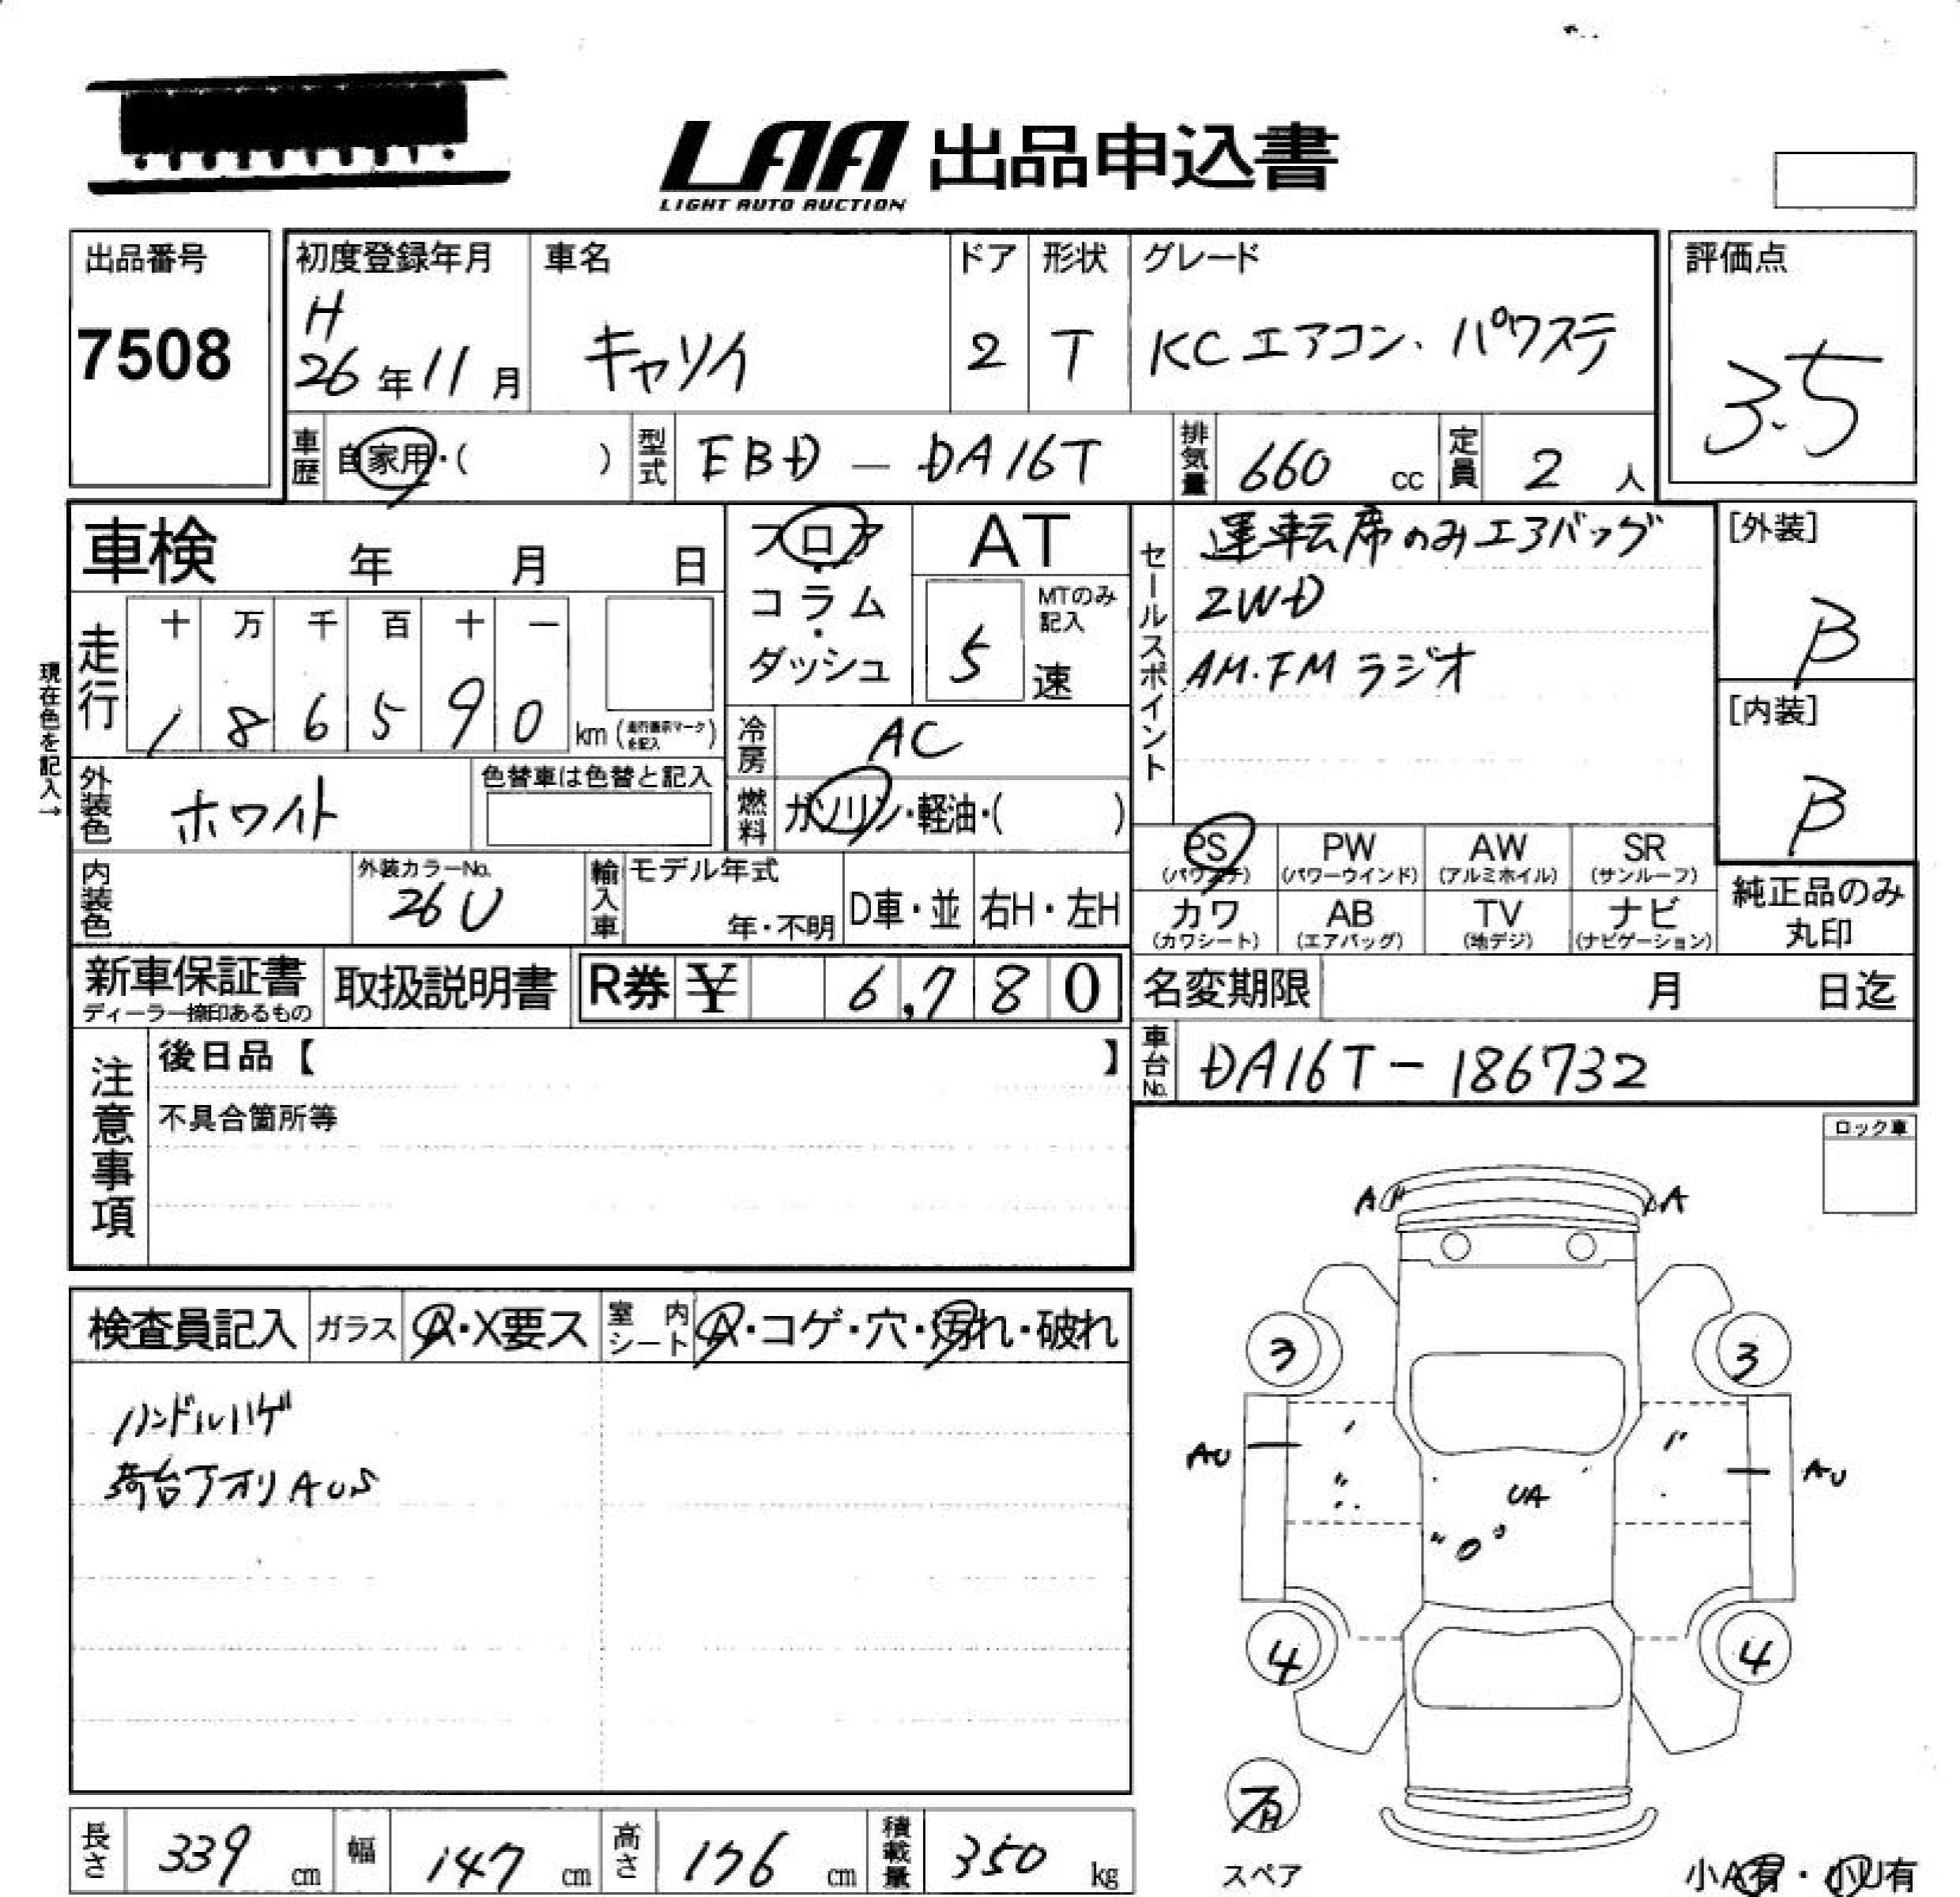 LAA 出品申込書
LIGHT AUTO AUCTION
出品番号
7508
初度登録年月
H
26年11月
車名
キャリイ
ドア
2
形状
T
グレード
KCエアコン、パワステ
評価点
3.5
車歴
自家用・( )
型式
EBD-DA16T
排気量
660 cc
定員
2 人
車検 年 月 日
フロア・コラム・ダッシュ
AT
5 速
MTのみ記入
セールスポイント
運転席のみエアバッグ
2WD
AM.FMラジオ
[外装]
B
[内装]
B
現在色を記入→
走行
十 万 千 百 十 一
1 8 6 5 9 0 km
冷房
AC
外装色
ホワイト
色替車は色替と記入
燃料
ガソリン・軽油・( )
PS (パワステ)
PW (パワーウインド)
AW (アルミホイル)
SR (サンルーフ)
カワ (カワシート)
AB (エアバッグ)
TV (地デジ)
ナビ (ナビゲーション)
純正品のみ
丸印
内装色
外装カラーNo.
26U
輸入車
モデル年式
年・不明
D車・並
右H・左H
新車保証書
ディーラー捺印あるもの
取扱説明書
R券 ¥ 6,780
名変期限 月 日迄
車台No.
DA16T-186732
注意事項
後日品【 】
不具合箇所等
ロック車
A A
3 3
AU AU
UA
4 4
有
スペア
小A有・小U有
検査員記入
ガラス
A・X要ス
室内シート
A・コゲ・穴・汚れ・破れ
ハンドルハゲ
荷台アオリAUS
長さ
339 cm
幅
147 cm
高さ
176 cm
積載量
350 kg